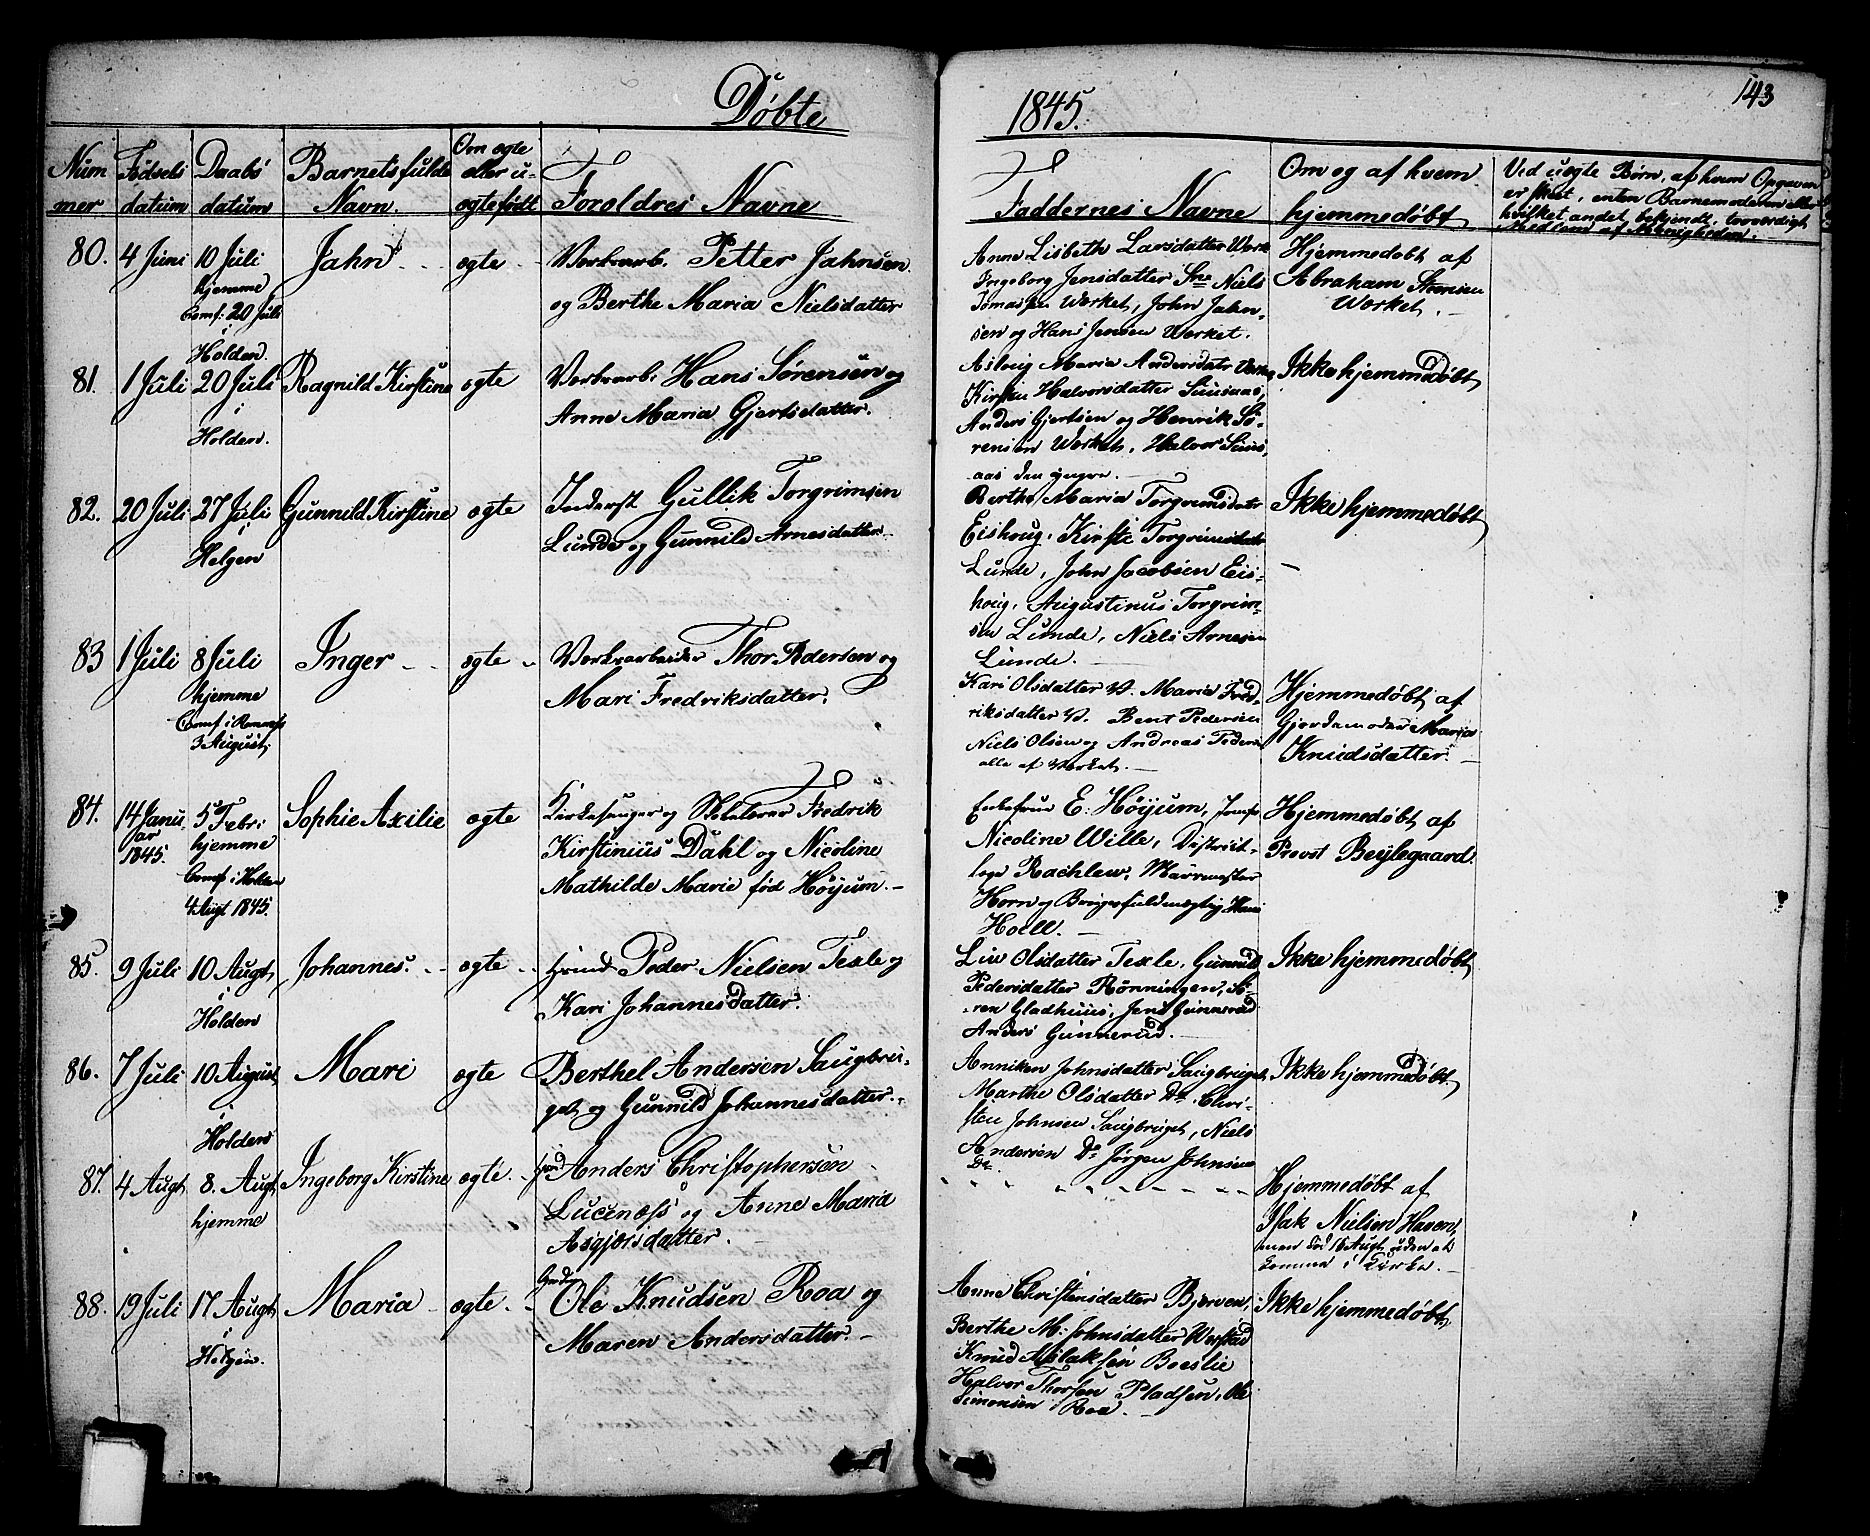 Døbte
1845.
143
Num
mer
Fødsels
datum
Daabs
datum
Barnets fulde
Navn.
Om ægte
eller u-
ægte født
Forældres Navne
Faddernes Navne
Om og af hvem
hjemmedøbt
Ved uægte Børn, af hvem Opgaven
er skeet, enten Barnemoderen eller
hvilket andet bekjendt, troværdigt
Medlem af Menigheden.
80. 4 Juni
10 Juli
hjemme
Comf: 20 Juli
i
Holden.
Jahn
ægte
Verksarb. Petter Jahnsen
og Berthe Maria Nielsdatter
Anne Lisbeth Larsdatter Værk
Ingeborg Jensdatter Sne Niels
Tomassen Værket, John Jahn-
sen og Hans Jensen Værket.
Hjemmedøbt af
Abraham Steensen
Værket.
81. 1 Juli
20 Juli
i
Holden.
Ragnild Kirstine
ægte
Verksarb. Hans Sørensen og
Anne Maria Gjertsdatter.
Asloug Maria Andersdatr
Kirsten Halvorsdatter Suusaas,
Anders Gjertsen og Henrik Sø-
rensen Værket, Halvor Suus-
aas den yngre.
Ikke hjemmedøbt
82. 20 Juli
27 Juli
i
Helgen
Gunnild Kirstine
ægte
Inderst Gullik Torgrimsen
Lunde og Gunnild Arnesdatter
Berthe Maria Torgrimsdatr
Eishoug, Kirsti Torgrimsdatr
Lunde, John Jacobsen Eis-
houg, Augustinus Torgrim-
sen Lunde, Niels Arnesen
Lunde.
Ikke hjemmedøbt
83 1 Juli
8 Juli
hjemme
Comf: i Romnæs
3 August.
Inger
ægte
Verksarbeider Thor Pedersen og
Mari Fredriksdatter.
Kari Olsdatter V. Maria Fred-
riksdatter V. Bent Pedersen
Niels Olsen og Andreas Peders
alle af Værket.
Hjemmedøbt af
Gjordemoder Maria
Knudsdatter.
84. 14 Janu
ar
1845.
5 Febr:
hjemme
Comf: i Holden
4 Augt 1845.
Sophie Axilie
ægte
Kirkesanger og Skolelærer Fredrik
Kirstinius Dahl og Nicoline
Mathilde Marie fød Høyum.
Enkefrue E. Høyum, Jomfr
Nicoline Wille, District-
læge Rachlew, Murmester
Horn og Brugsfuldmægtig Hans
Hoell.
Hjemmedøbt af
Provst Beylegaard.
85. 9 Juli
10 Augt,
i
Holden
Johannes.
ægte
Grund Peder Nielsen Texle og
Kari Johannesdatter.
Liv Olsdatter Texle, Gunnild
Pedersdatter Rønningen, Sø-
ren Gladhuus, Jens Gunnerud
Anders Gunnerud.
Ikke hjemmedøbt
86. 7 Juli
10 August,
i
Holden
Mari
ægte
Berthel Andersen Saugbru-
get og Gunnild Johannesdatter.
Anniken Johnsdatter Saugbruget,
Marthe Olsdatter Do Chri-
sten Johnsen Saugbruget, Niels
Andersen Do Jørgen Johnsen
Do.
Ikke hjemmedøbt
87. 4 Augt
8. Augt
hjemme
Ingeborg Kirstine
ægte.
Anders Christophersen
Lucenæss og Anne Maria
Asgjersdatter.
Hjemmedøbt af
Isak Nielsen Haven,
men død 16 Augt, uden at
komme i Kirke.
88. 19 Juli
17 Augt
i
Helgen.
Maria
ægte
Ole Knudsen Roa og
Maren Andersdatter.
Anne Christensdatter Bjerven,
Berthe M. Johnsdatter Verstad
Knud Aslaksen Boeslie
Halvor Thorsen Pladsen, Ole
Simonsen Roa.
Ikke hjemmedøbt